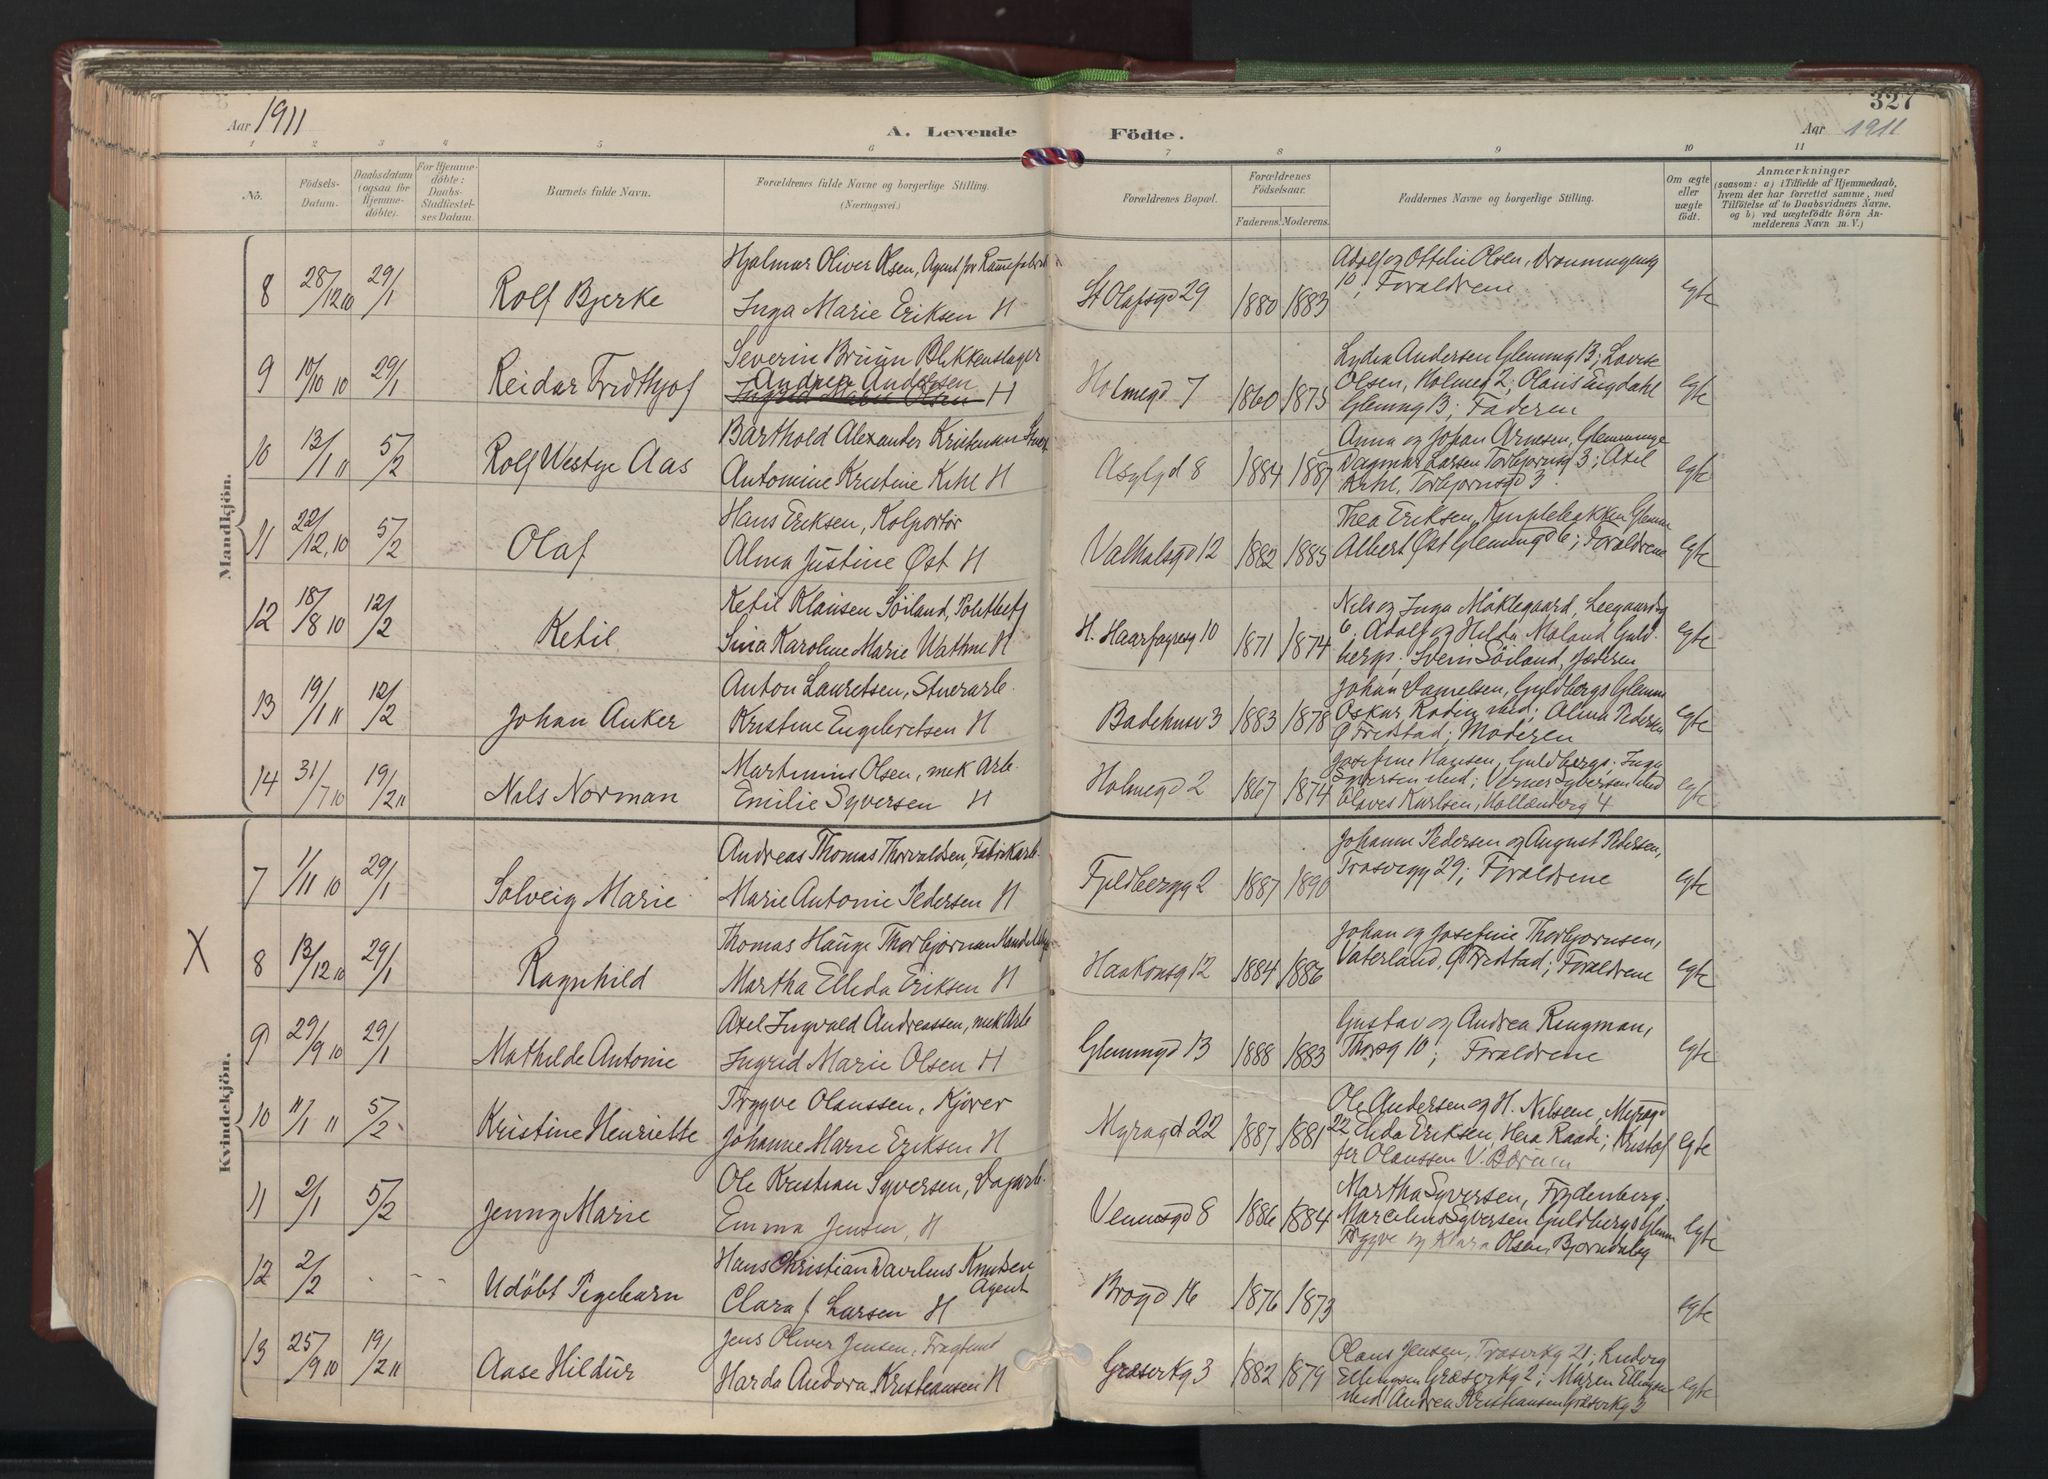 327
Aar 1911
A. Levende Födte.
Aar 1911
1 2 3 4 5 6 7 8 9 10 11
No.
Födsels-Datum.
Daabsdatum (ogsaa for Hjemmedöbte).
For Hjemmedöbte: Daabs-Stadfæstelses Datum.
Barnets fulde Navn.
Forældrenes fulde Navne og borgerlige Stilling.
(Næringsvei.)
Forældrenes Bopæl.
Forældrenes Födselsaar.
Faderens. Moderens.
Faddernes Navne og borgerlige Stilling.
Om ægte eller uægte födt.
Anmærkninger
(saasom: a) i Tilfælde af Hjemmedaab, hvem der har forrettet samme, med Tilföielse af to Daabsvidners Navne, og b) ved uægtefödte Börn Anmelderens Navn m. V.)
Mandkjön.
8 28/12 10 29/1 Rolf Bjerke
Hjalmar Oliver Olsen, Agent for
Inga Marie Eriksen H
St Olafsgd 29 1880 1883
Adolf og Ottilie Olsen, Dronningensg
10; Forældrene
egte
9 10/10 10 29/1 Reidar Fridthjof
Severin Bruun Blikkenslager
Andrea Andersen
Ingrid Marie Olsen H
Holmegd 7 1860 1875
Lydia Andersen Glemmg 13; Lovise
Olsen, Holmeg 2; Olaus Engdahl
Glemmg 13; Faderen
egte
10 13/1 11 5/2 Rolf Westye Aas
Barthold Alexander Kristensen
Antonine Kristine Kihl H
Asylgd 8 1884 1887
Anna og Johan Arnesen, Glemminge
Dagmar Larsen Torbjornsg 3; Axel
Kihl, Torbjornsgd 3
egte
11 22/12, 10 5/2 Olaf
Hans Eriksen, Kolportør
Alma Justine Øst H
Valhalsgd 12 1882 1885
Thea Eriksen, Glemm
Albert Øst Glemmgd 6; Forældrene
egte
12 18/8 10 12/2 Ketil
Ketil Klausen Söiland, Politbetj
Sina Karoline Marie Wathne H
H. Haarfagresg 10 1871 1874
Nils og Inga Möklegaard, Leegaardsg
6; Adolf og Hilda Moland Guld-
bergs; Svein Söiland, Jæderen
egte
13 19/1 11 12/2 Johan Anker
Anton Lauritsen, Stuerarb.
Kristine Engebretsen H
Badehusv 3 1883 1878
Johan Danielsen, Guldbergs Glemm
Oskar Rodin ibid; Alma Pedersen
Ø Fredstad; Moderen
egte
14 31/7 10 19/2 11 Nils Norman
Martinius Olsen, mek Arb.
Emilie Syversen H
Holmegd 2 1867 1874
Josefine Hansen, Guldbergs; Inga
Syversen ibid; Verner Syversen ibid
Olaves Karlsen, Hollenderg 4
egte
Kvindekjön.
7 1/11 10 29/1 Solveig Marie
Andreas Thomas Thorvaldsen, Fabrikarb.
Marie Antonie Pedersen H
Fjeldbergg 2 1887 1890
Johanne Pedersen og August Pedersen,
Trosvegg 29; Forældrene
egte
X
8 13/12 10 29/1 Ragnhild
Thomas Hauge Thorbjörnsen
Martha Elleda Eriksen H
Haakonsg 12 1884 1886
Johan og Josefine Thorbjornsen,
Vaterland, Ø Fredstad; Forældrene
egte
9 29/9 10 29/1 Mathilde Antonie
Axel Ingvald Andreassen, mek Arb
Ingrid Marie Olsen H
Glemmgd 13 1888 1883
Gustav og Andrea Ringman,
Thorsg 10; Forældrene
egte
10 11/1 11 5/2 Kristine Henriette
Trygve Olaussen, Kjörer
Johanne Marie Eriksen H
Myragd 22 1887 1881
Ole Andersen og H. Nilsen, Myragd
22 Elida Eriksen, Raade; Kristof-
fer Olaussen V. Bærum
egte
11 2/1 5/2 Jenny Marie
Ole Kristian Syversen, Dagarb.
Emma Jensen, H
Venusgd 8 1886 1884
Martha Syversen, Frydenberg.
Marcelius Syversen Guldbergs Glemm
Trygve og Klara Olsen, Bjorndalsg
egte
12 2/2 - - - Udöbt Pigebarn
Hans Christian Davelius Knudsen
Agent
Clara f Larsen H
Brogd 16 1876 1873
egte
13 25/9 10 19/2 11 Aase Hildur
Jens Oliver Jensen,
Harda Andora Kristiansen H
Græsvikg 3 1882 1879
Olaus Jensen, Trosvikg 21; Ludvig
Ellingsen Græsvikg 2; Maren Ellingsen
ibid Andrea Kristiansen Græsvikg 3
egte